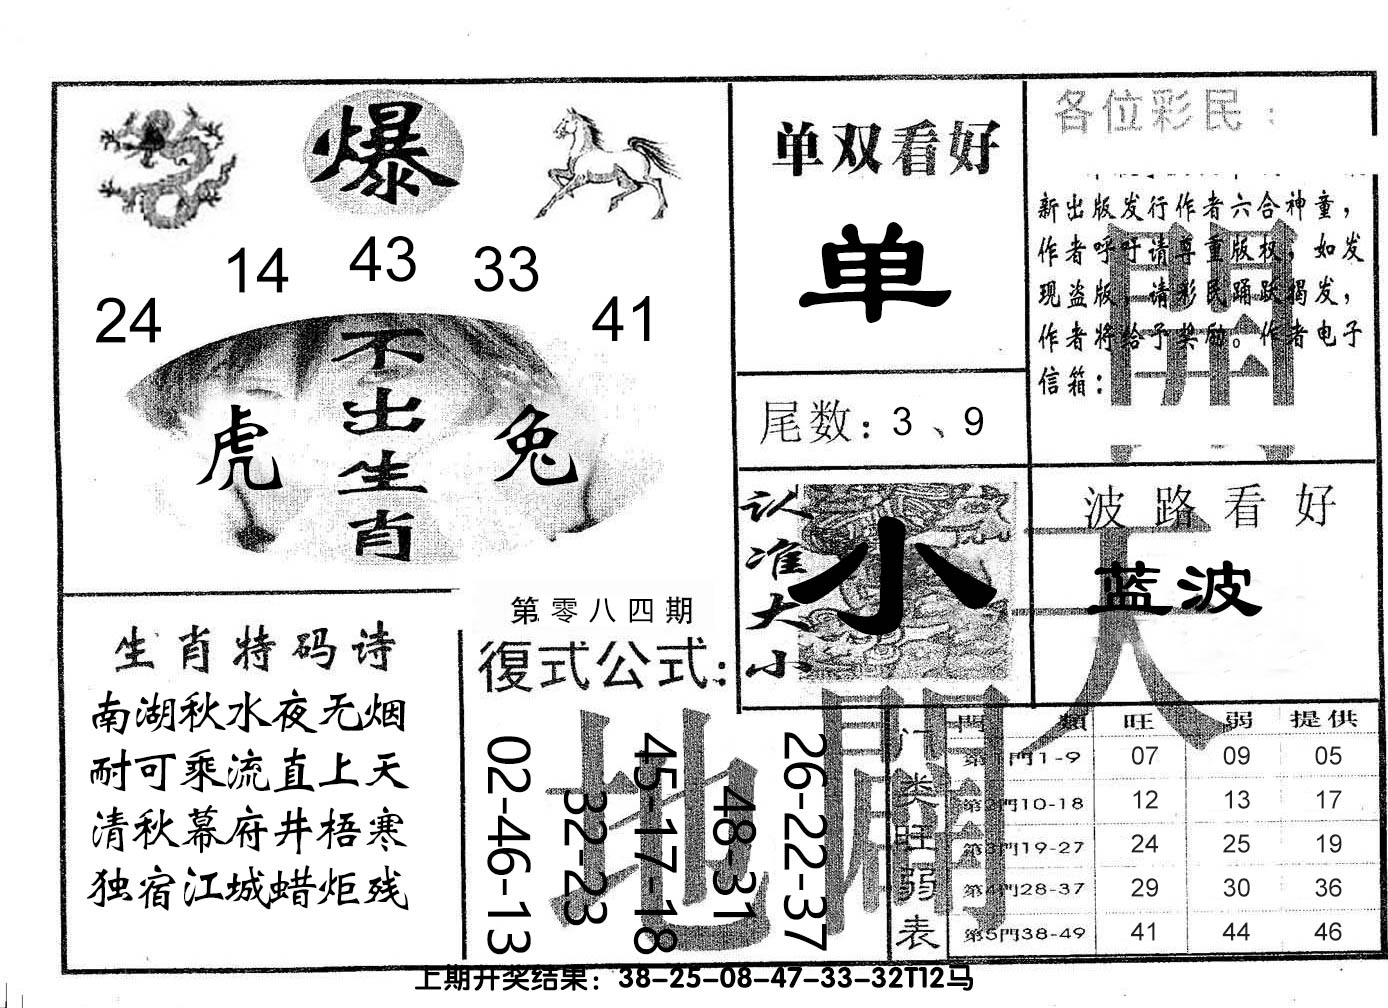 爆
24
14
43
33
41
不出生肖
虎
兔
单双看好
单
尾数：3、9
各位彩民：
新出版发行作者六合神童，
作者呼吁请尊重版权，如发
现盗版，请彩民踊跃揭发，
作者将给予奖励。作者电子
信箱：
認准大小
小
波路看好
蓝波
天
開
地
闢
生肖特码诗
南湖秋水夜无烟
耐可乘流直上天
清秋幕府井梧寒
独宿江城蜡炬残
第零八四期
復式公式：
02-46-13
32-23
45-17-18
48-31
26-22-37
门类旺弱表
門 類 旺 弱 提供
第1門1-9 07 09 05
第2門10-18 12 13 17
第3門19-27 24 25 19
第4門28-37 29 30 36
第5門38-49 41 44 46
上期开奖结果：38-25-08-47-33-32T12马